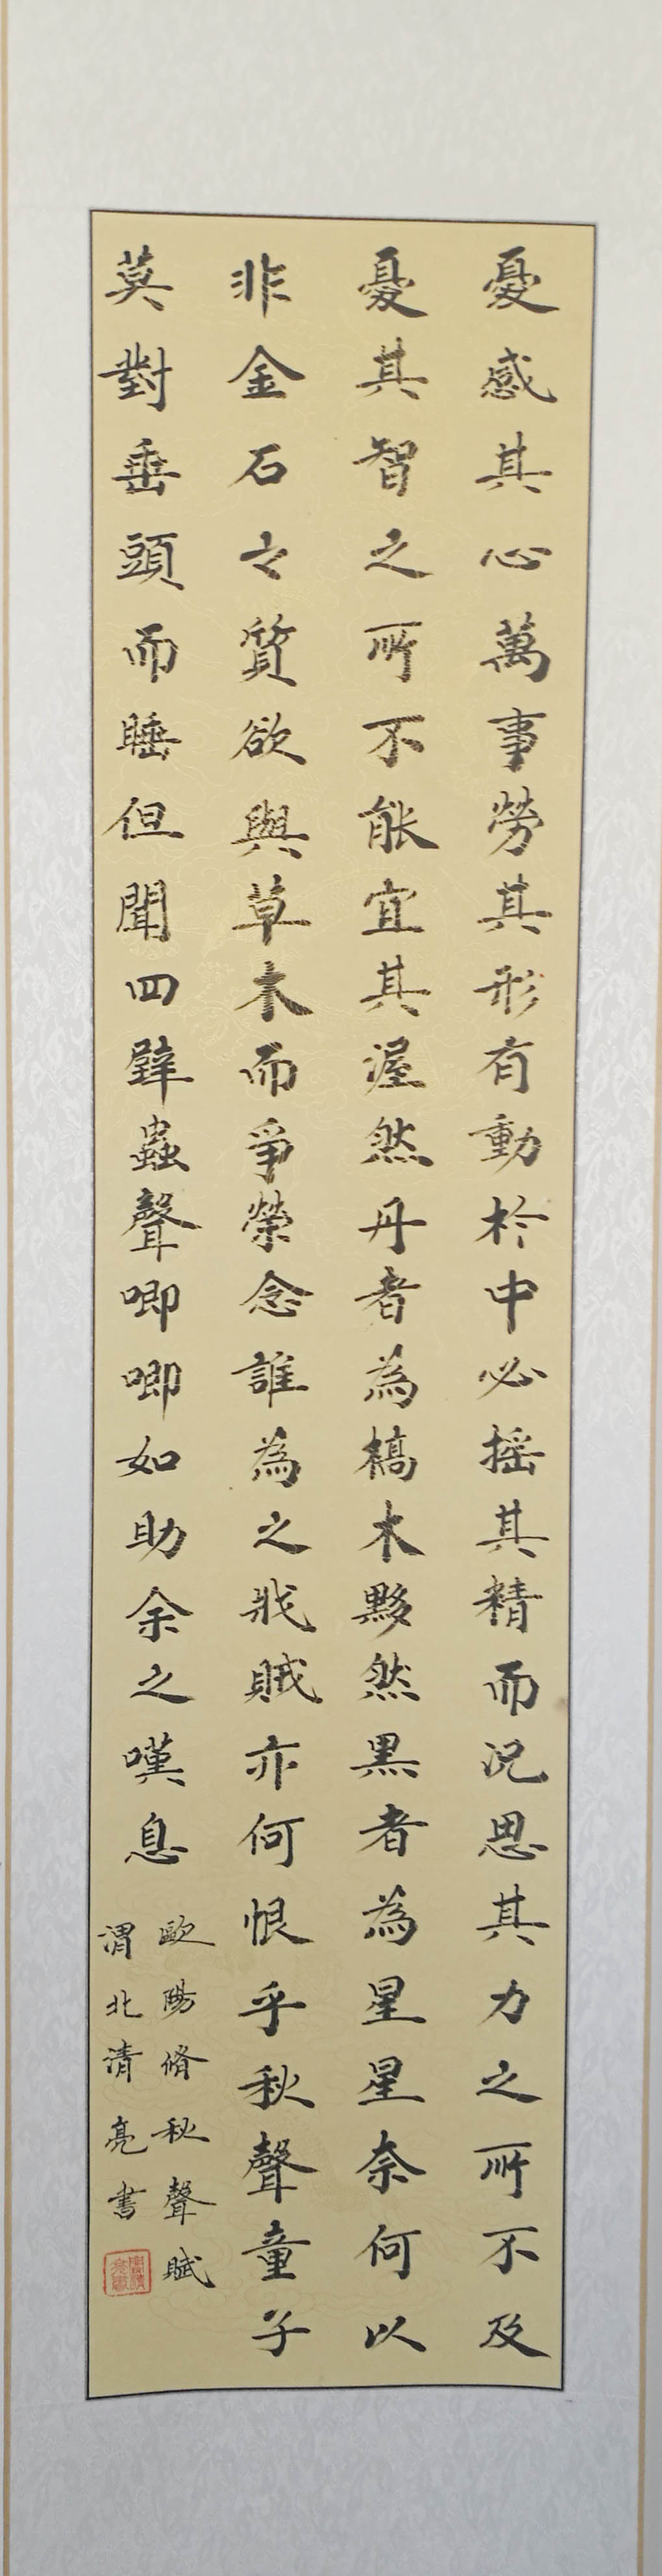 憂感其心萬事勞其形有動於中必摇其精而況思其力之所不及
憂其智之所不能宜其渥然丹者為槁木黟然黑者為星星奈何以
非金石之質欲與草木而爭榮念誰為之戕賊亦何恨乎秋聲童子
莫對垂頭而睡但聞四壁蟲聲唧唧如助余之嘆息
歐陽脩秋聲賦
渭北清亮書